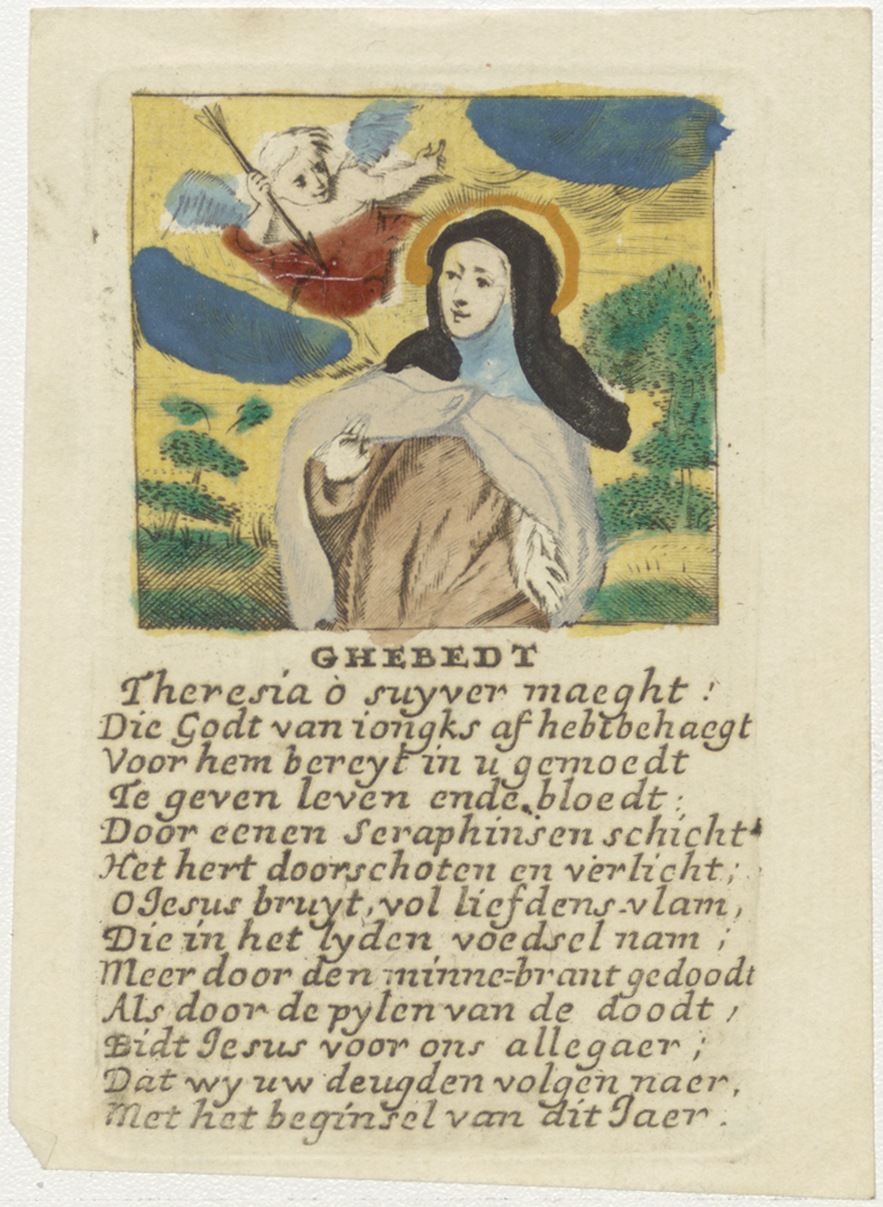 GHEBEDT
Theresia ò suyver maeght !
Die Godt van iongks af hebt behaegt
Voor hem bereyt in u gemoedt
Te geven leven ende bloedt ;
Door eenen Seraphinsen schicht
Het hert doorschoten en verlicht ;
O Jesus bruyt, vol liefdens-vlam,
Die in het lyden voedsel nam ;
Meer door den minne=brant gedoodt
Als door de pylen van de doodt ,
Bidt Jesus voor ons allegaer ;
Dat wy uw deugden volgen naer,
Met het beginsel van dit Jaer .